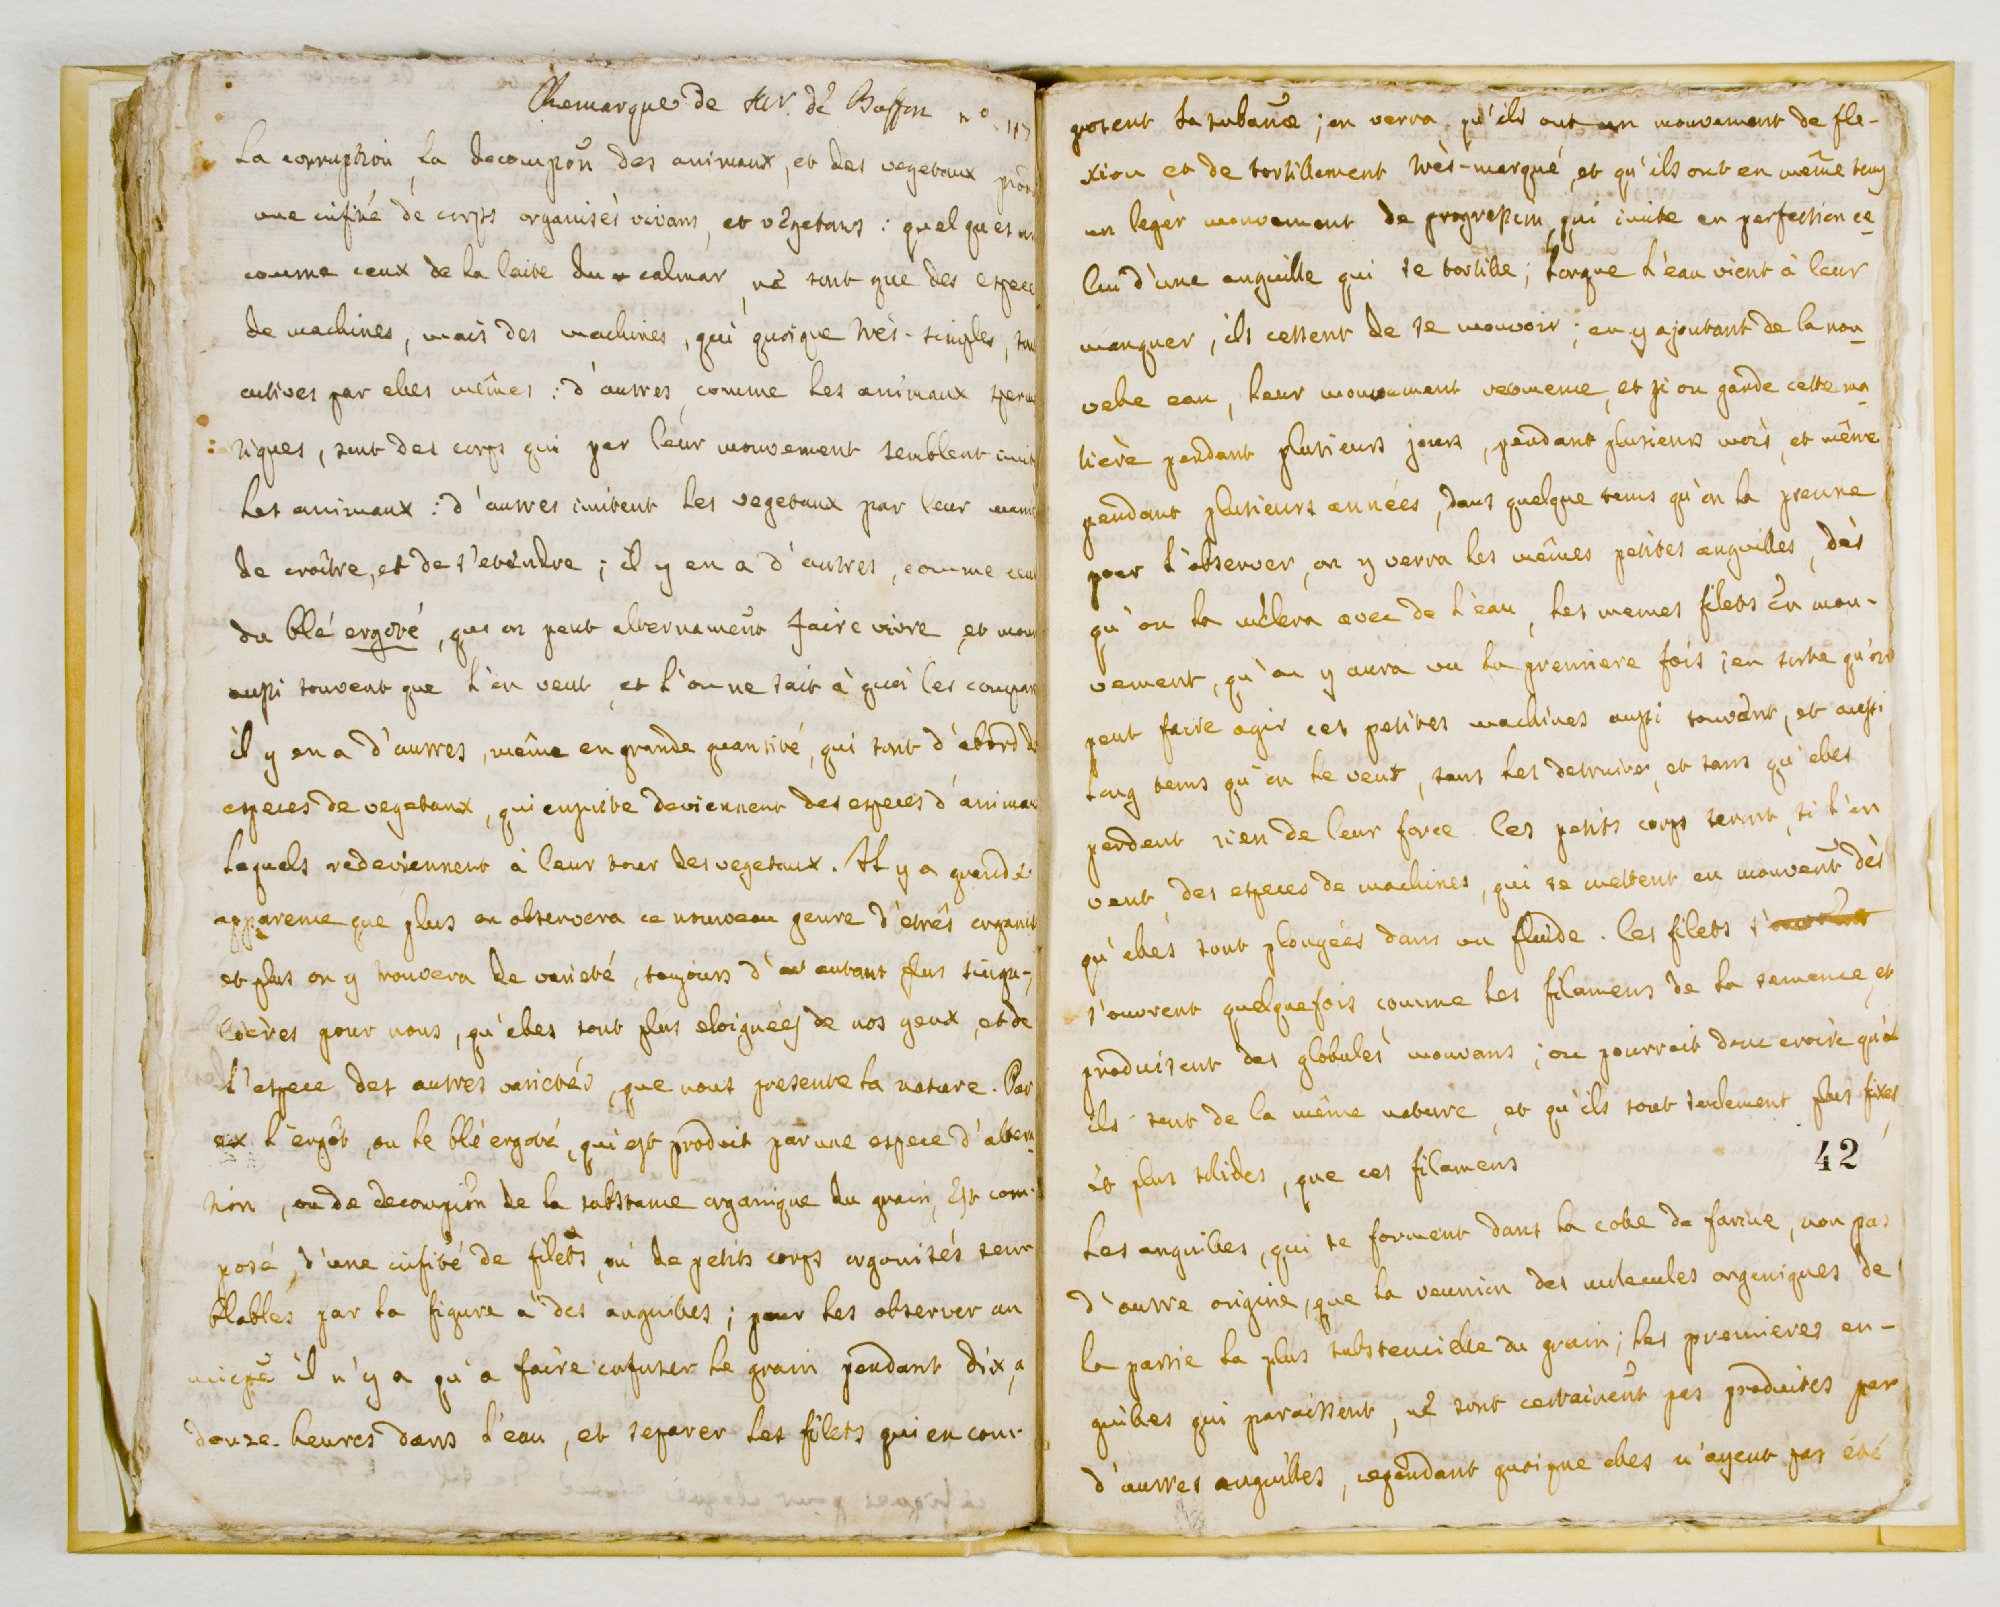 Remarque de Mr. de Buffon n°
La corruption, la decompon̄ des animaux, et des vegetaux
une infité de corps organisés vivans, et végetans : quelques
comme ceux de la laite du calmar, ne sont que des espece
de machines, mais des machines, qui quoique très-simples, son
actives par elles mêmes : d'autres, comme les animaux sperma
tiques, sont des corps qui par leur mouvement semblent imit
les animaux : d'autres imitent les vegetaux par leur mani
de croître, et de s'etendre ; il y en a d'autres, comme ceux
du blé ergoté, que on peut alternament̄ faire vivre, et mour
aussi souvent que l'on veut, et l'on ne sait à quoi les compare
il y en a d'autres, même en grande quantité, qui sont d'abord de
especes de vegetaux, qui ensuite deviennent des especes d'animau
lequels redeviennent à leur tour des vegetaux. Il y a grande
apparence que plus on observera ce nouveau genre d'etrês organis
et plus on y trouvera de varieté, toujours d'autant plus singu-
lières pour nous, qu'elles sont plus eloignées de nos yeux, et de
l'espece des autres varietés, que nous presente la nature. Par
ex l'ergot, ou le blé ergoté, qui est produit par une espece d'altera
tion, ou de decompon̄ de la substance organique du grain, est com-
posé, d'une infité de filets, ou de petits corps organisés sem-
blables par la figure à des anguilles ; pour les observer au
micrpē il n'y a qu'a faire infuser le grain pendant dix, a
douze-heures dans l'eau, et separer les filets qui en com-
posent la substan̄ce ; on verra qu'ils ont un mouvement de fle-
xion et de tortillement très-marqué, et qu'ils ont en même tems
un legér mouvement de progression, qui imite en perfection ce-
lui d'une anguille qui se tortille ; lorque l'eau vient à leur
manquer, ils cessent de se mouvoir ; en y ajoutant de la nou-
velle eau, leur mouvement recomence, et si on garde cette ma-
tière pendant plusieurs jours, pendant plusieurs mois, et même
pendant plusieurs années, dans quelque tems qu'on la prenne
pour l'observer, on y verra les mêmes petites anguilles, dès
qu'on la mêlera avec de l'eau, les memes filets en mou-
vement, qu'on y aura vu la premiere fois ; en sorte qu'on
peut faire agir ces petites machines aussi souvent, et aussi
long tems qu'on le veut, sans les detruire, et sans qu'elles
perdent rien de leur force. Ces petits corps seront, si l'on
veut, des especes de machines, qui se mettent en mouvent̄ dès
qu'elles sont plongées dans un fluide. Ces filets
s'ouvrent quelquefois comme les filamens de la semence, et
produisent des globules mouvans ; on pourroit donc croire qu'
ils sont de la même nature, et qu'ils sont seulement plus fixes,
et plus solides, que ces filamens
42
Les anguilles, qui se forment dans la colle de farine, non pas
d'autre origine, que la reunion des molecules organiques de
la partie la plus substencielle du grain ; les premieres an-
guilles qui paraissent, ne sont certainent̄ pas produites par
d'autres anguilles, cependant quoique elles n'ayent pas été